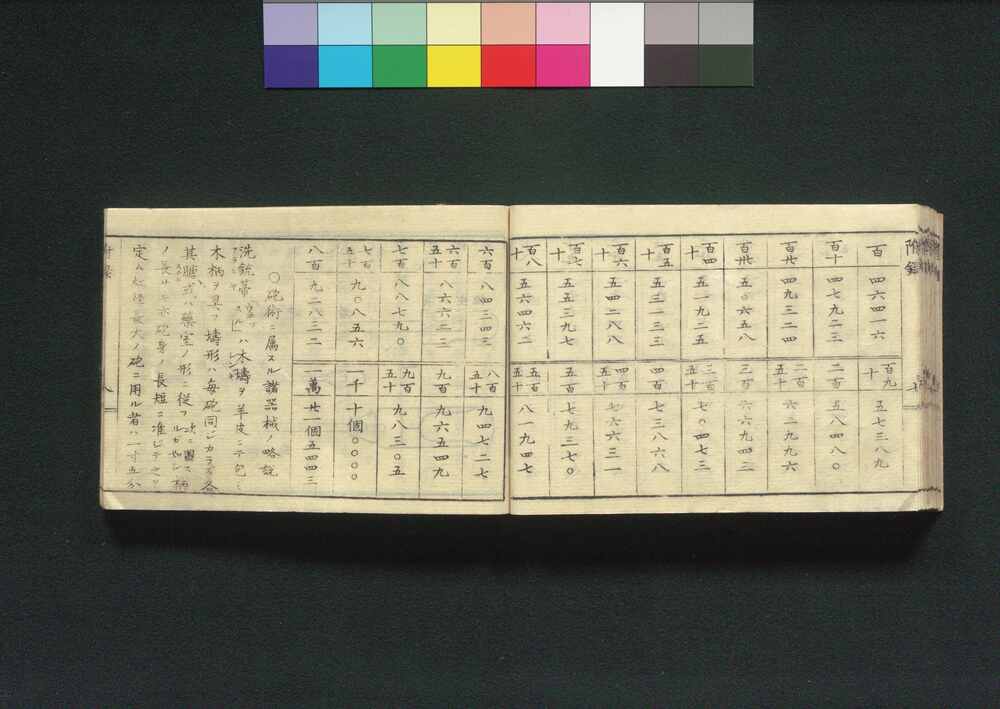 附錄
百 四六四一六
百十 四七九二三
百廿 四九三二四
百卅 五〇六五八
百四十 五一九二五
百五十 五三一三三
百六十 五四二八八
百七十 五五三九七
百八十 五六四六二
百九十 五七三八九
二百 五八四八〇
二百五十 六二九九六
三百 六六九四三
三百五十 七〇四七三
四百 七三八六八
四百五十 七六六三一
五百 七九三七〇
五百五十 八一九四七
六百 八四三四三
六百五十 八六六二三
七百 八八七九〇
七百五十 九〇八五六
八百 九二八三二
八百五十 九四七二七
九百 九六五四九
九百五十 九八三〇五
一千 十個〇〇〇〇
一萬 廿一個五四四三
〇砲術ニ属スル諸器械ノ略説
洗銃箒 ハ木檮ヲ羊皮ニテ包ミ
木柄ヲ具フ檮形ハ毎砲同シカラズ各
其膅或ハ藥室ノ形ニ從フ次ニ圖ス 柄
ノ長サモ亦砲身ノ長短ニ准シテ之ヲ
定ム 長大ノ砲ニ用ル者ハ一寸五分